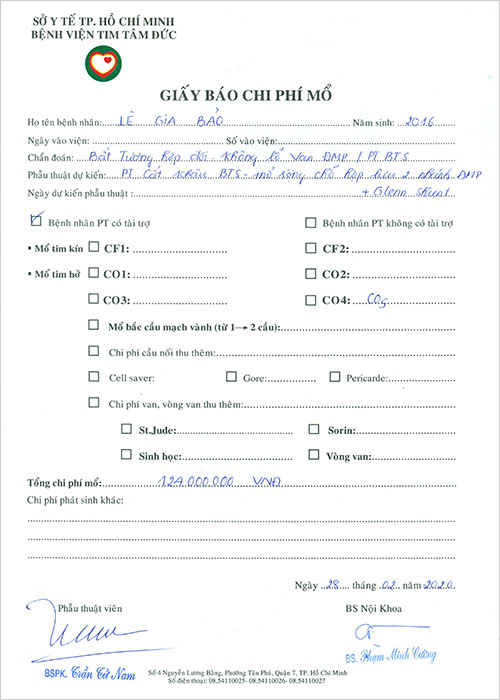 SỞ Y TẾ TP. HỒ CHÍ MINH
BỆNH VIỆN TIM TÂM ĐỨC
GIẤY BÁO CHI PHÍ MỔ
Họ tên bệnh nhân: LÊ GIA BẢO Năm sinh: 2016
Ngày vào viện: Số vào viện:
Chẩn đoán: Bất Tương hợp đôi - không lỗ van ĐMP / PT BTS
Phẫu thuật dự kiến: PT Cắt khâu BTS - mở rộng chỗ hẹp 2 nhánh ĐMP
Ngày dự kiến phẫu thuật : + Glenn shunt
Bệnh nhân PT có tài trợ Bệnh nhân PT không có tài trợ
• Mổ tim kín CF1: CF2:
• Mổ tim hở CO1: CO2:
CO3: CO4: CO5
Mổ bắc cầu mạch vành (từ 1→ 2 cầu):
Chi phí cầu nối thu thêm:
Cell saver: Gore: Pericarde:
Chi phí van, vòng van thu thêm:
St.Jude: Sorin:
Sinh học: Vòng van:
Tổng chi phí mổ: 124.000.000 VNĐ
Chi phí phát sinh khác:
Ngày 28 tháng 02 năm 2020
Phẫu thuật viên BS Nội Khoa
BSPK. Trần Từ Nam BS. Phạm Minh Cường
Số 4 Nguyễn Lương Bằng, Phường Tân Phú, Quận 7, TP. Hồ Chí Minh
Số điện thoại: 08.54110025- 08.54110026- 08.54110027